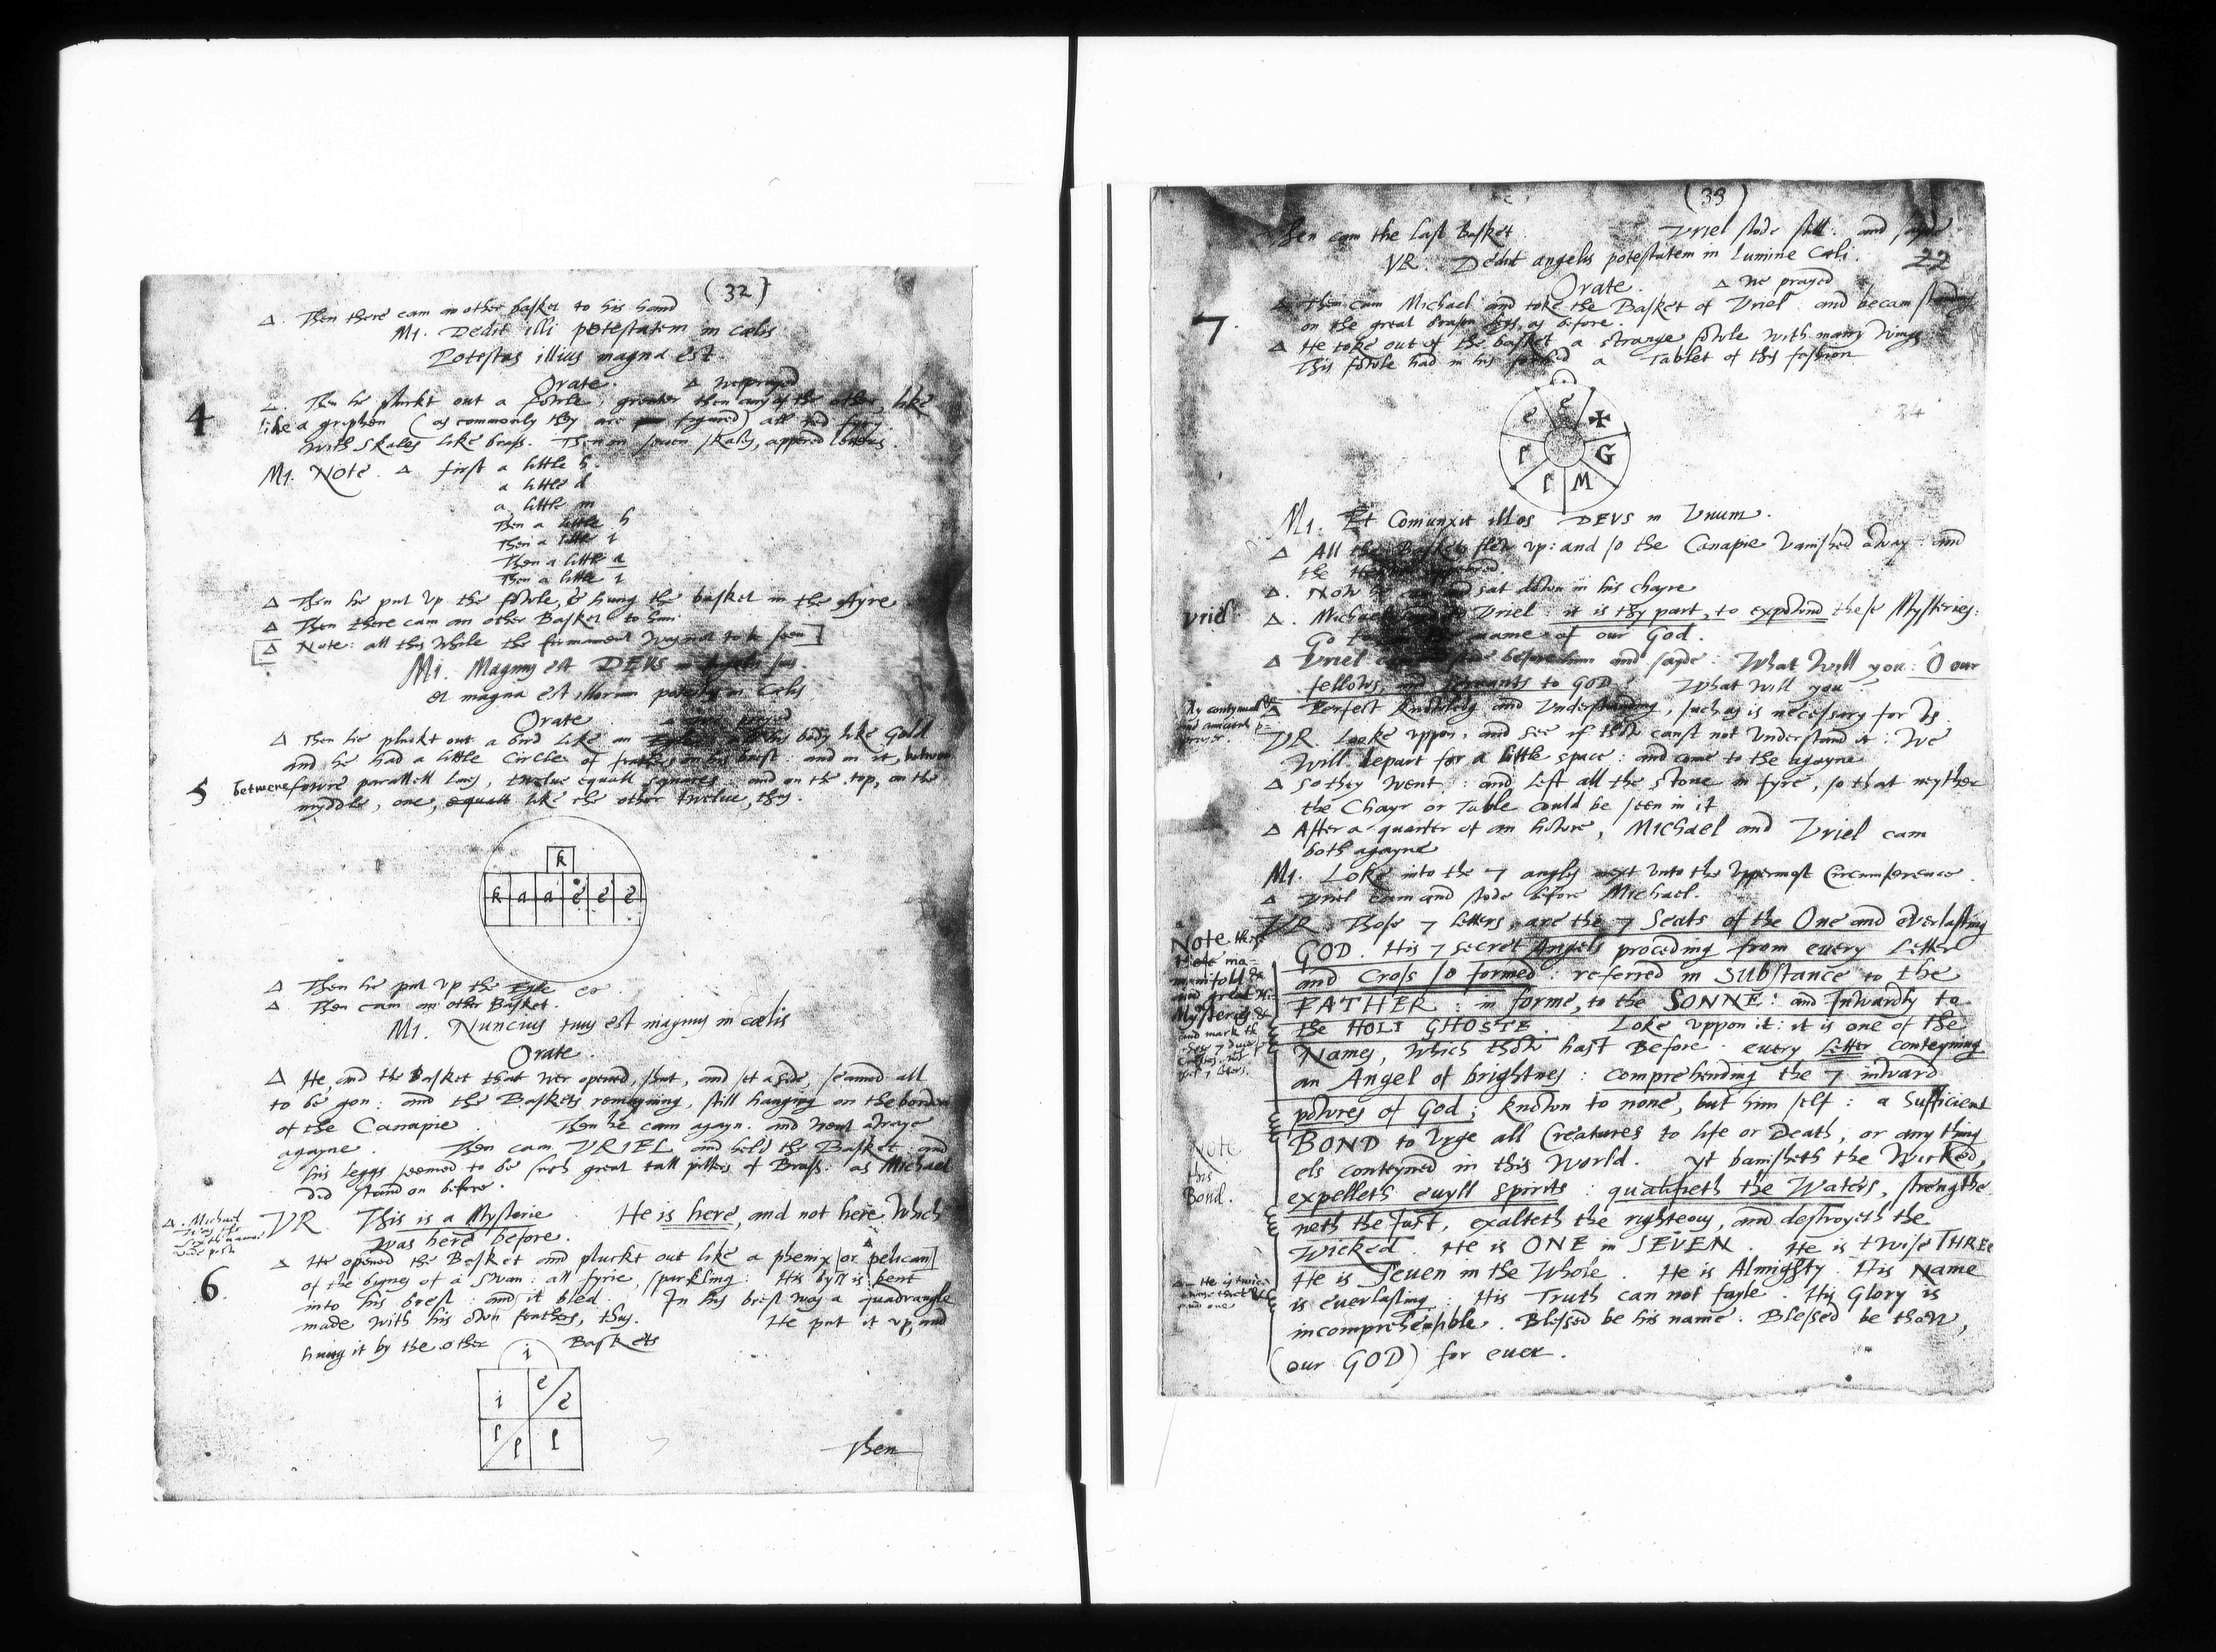 (32)
Δ. Then there cam an other basket to his hand
Mi. Dedit illi potestatem in cælis
Potestas illius magna est.
Orate. Δ we prayed
Δ. Then he pluckt out a fowle, greater then any of the other like
4
like a griphon (as commonly they are figured) all red fyry
with skales like brass. Then on seven skales, appered letters.
Mi. Note. Δ first a little h.
a little d
a little m
Then a little h
Then a little i
Then a little a
Then a little i
Δ Then he put up the fowle, & hung the basket in the Ayre
Δ Then there cam an other Basket to him
Δ Note: all this while the firmament was not to be seen
Mi. Magnus est DEUS in Angelis suis.
et magna est illorum potestas in Cælis
Orate Δ we prayed
Δ Then he pluckt out a bird like an his body like Gold
and he had a little Circle of feathers on his brest: and in it, between
5
betwene fowre parallell lines, twelve equall squares: and on the top, on the
myddle, one, equall like the other twelve, thus.
k
k a a e e e
Δ Then he put up the Egle &c.
Δ Then cam an other Basket.
Mi. Nuncius tuus est magnus in cælis
Orate.
Δ He, and the Basket that wer opened, shut, and set aside, seamed all
to be gon: and the Baskets remayning, still hanging on the border
of the Canapie. Then he cam agayn. and went awaye
agayne. Then cam URIEL and held the Basket: and
his leggs seemed to be such great tall pillers of Brass: as Michael
did stand on before.
Δ. Michael
UR. This is a Mysterie He is here, and not here, Which
was here before.
Δ He opened the Basket and pluckt out like a phenix [or pelican]
of the bignes of a swan: all fyrie, sparkling: His byll is bent
6.
into his brest: and it bled. In his brest was a quadrangle
made with his own feathers, thus. He put it up, and
hung it by the other Baskets
i
i e e
l l l
Then
(33)
Then cam the last Basket. Uriel stode still: and sayde
UR. Dedit angelis potestatem in Lumine Cæli. 22
Orate. Δ We prayed
Δ Then cam Michael and toke the Basket of Uriel and becam standing
7.
on the great brasen legs, as before.
Δ He toke out of the basket a strange fowle with many wings
This fowle had in his forhed a Tablet of this fashion
e e ✠ G M l l
24
Mi. Et Coniunxit illos DEUS in Unum.
Δ All the Baskets flew up: and so the Canapie vanished away: and
the Heaven appeared.
Δ. Now he cam and sat down in his chayre
Uriel.
Δ. Michael sayd to Uriel: it is thy part, to expownd these Mysteries:
Go to in the name of our God.
Δ Uriel cam stode before him and sayde: What Will you: Ô our
fellows, and servants to GOD? What will you?
Δ Perfect Knowledg and Understanding, such as is necessary for Us.
UR. Looke uppon, and see if thow canst not Understand it: We
Will depart for a little space: and come to the agayne
Δ so they went: and left all the stone in fyre, so that neyther
the Chayr or Table could be seen in it
Δ After a quarter of an howre, Michael and Uriel cam
both agayne
Mi. Loke into the 7 angles next unto the Uppermost Circumference
Δ Uriel cam and stode before Michael.
UR. Those 7 letters, are the 7 Seats of the One and everlasting
GOD. His 7 secret Angels proceding from every Letter
and Cross so formed: referred in Substance to the
FATHER: in forme, to the SONNE: and Inwardly to
the HOLY GHOSTE. Loke uppon it: it is one of the
Names, Which thow hast Before: every Letter conteyning
an Angel of brightnes: comprehending the 7 inward
powres of God; known to none, but him self: a Sufficient
BOND to Urge all Creatures to life or Death, or any thing
els conteyned in this World. Yt banisheth the Wicked,
expelleth euyll spirits: qualifieth the Waters, strengthe
neth the Just, exalteth the righteous, and destroyeth the
Wicked. He is ONE in SEVEN. He is twise THREE
He is Seuen in the Whole. He is Almighty. His Name
is everlasting: His Truth can not fayle. His Glory is
incomprehensible. Blessed be his name. Blessed be thow,
(our GOD) for ever.
Note
this
Bond.
Δ He is twice